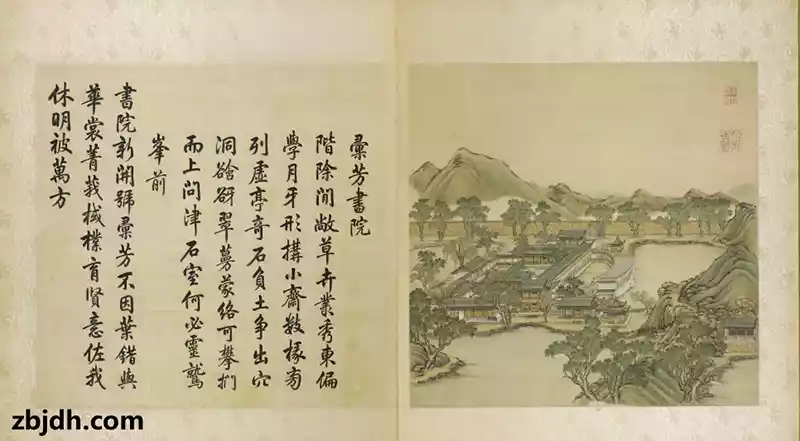 彚芳書院
階除閒敞草卉叢秀東偏
學月牙形搆小齋數椽旁
列虛亭竒石負土爭出穴
洞谽谺翠蔓蒙絡可攀捫
而上問津石室何必靈鷲
峯前
書院新開號彚芳不因葉錯與
華裳菁莪棫樸育賢意佐我
休明被萬方
zbjdh.com